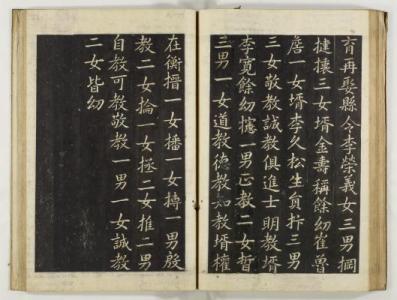 育再娶縣令李榮義女三男掆
揵攘三女壻金壽稱餘幼崔魯
詹一女壻李久松生員抃三男
三女敬教誠教俱進士明教壻
李寬餘幼攄一男正教二女晢
三男一女道教德教如教壻權
在衡搢一女播一女持一男殷
教二女掄一女拯二女推二男
自教可教敬教一男一女誠教
二女皆幼